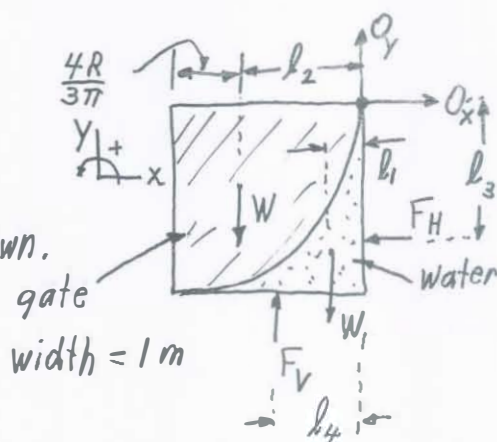 4R
3π
l₂
O_y
O_x
Y
+
x
l₁
l₃
W
F_H
wn.
gate
water
width = 1 m
W₁
F_V
l₄